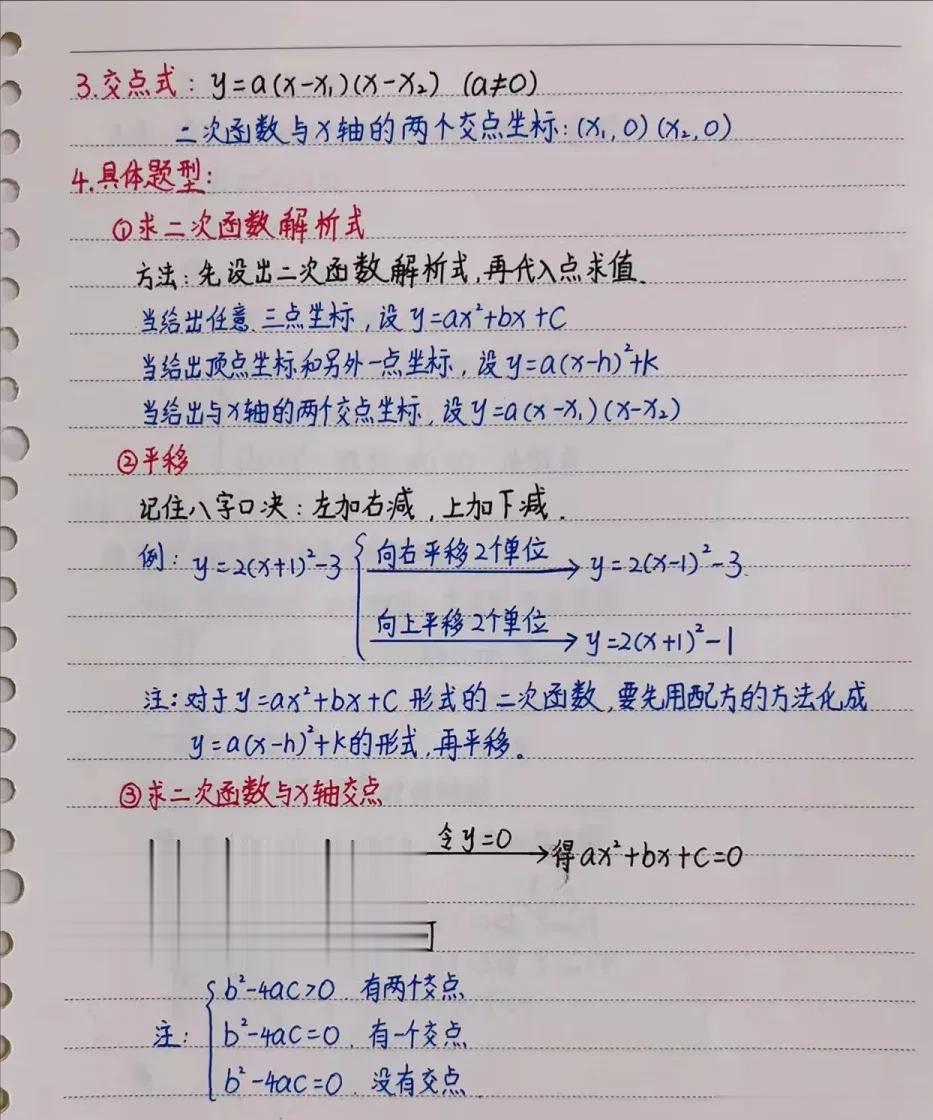 3.交点式：y=a(x-x₁)(x-x₂) (a≠0)
二次函数与x轴的两个交点坐标：(x₁,0)(x₂,0)
4.具体题型：
①求二次函数解析式
方法：先设出二次函数解析式,再代入点求值.
当给出任意三点坐标,设y=ax²+bx+c
当给出顶点坐标和另外一点坐标,设y=a(x-h)²+k
当给出与x轴的两个交点坐标,设y=a(x-x₁)(x-x₂)
②平移
记住八字口决：左加右减,上加下减.
例：y=2(x+1)²-3 向右平移2个单位 y=2(x-1)²-3.
向上平移2个单位 y=2(x+1)²-1
注：对于y=ax²+bx+c形式的二次函数,要先用配方的方法化成
y=a(x-h)²+k的形式,再平移。
③求二次函数与x轴交点
令y=0 得ax²+bx+c=0
b²-4ac>0 有两个交点
注： b²-4ac=0. 有一个交点
b²-4ac=0. 没有交点